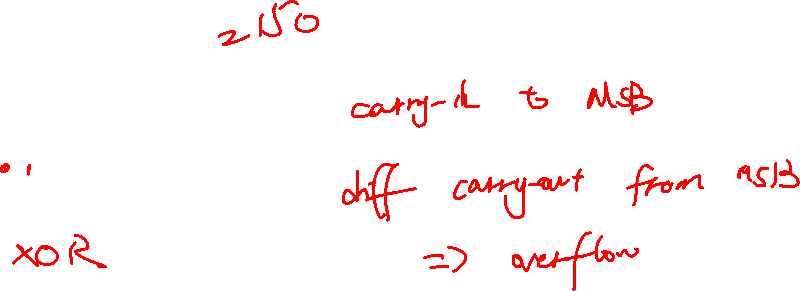 2150
carry-in to MSB
diff carry-out from MSB
XOR => overflow